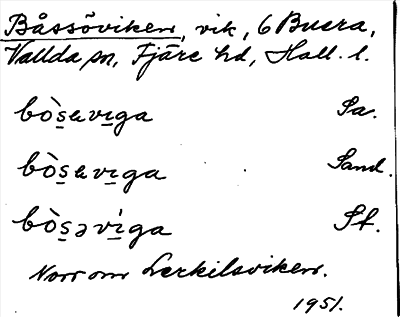 Båssöviken, vik, 6 Buera,
Vallda sn, Fjäre hd, Hall. l.
bòsaviga Sa.
bòsaviga Sand.
bòsəvíga St.
Norr om Lerkilsviken.
1951.